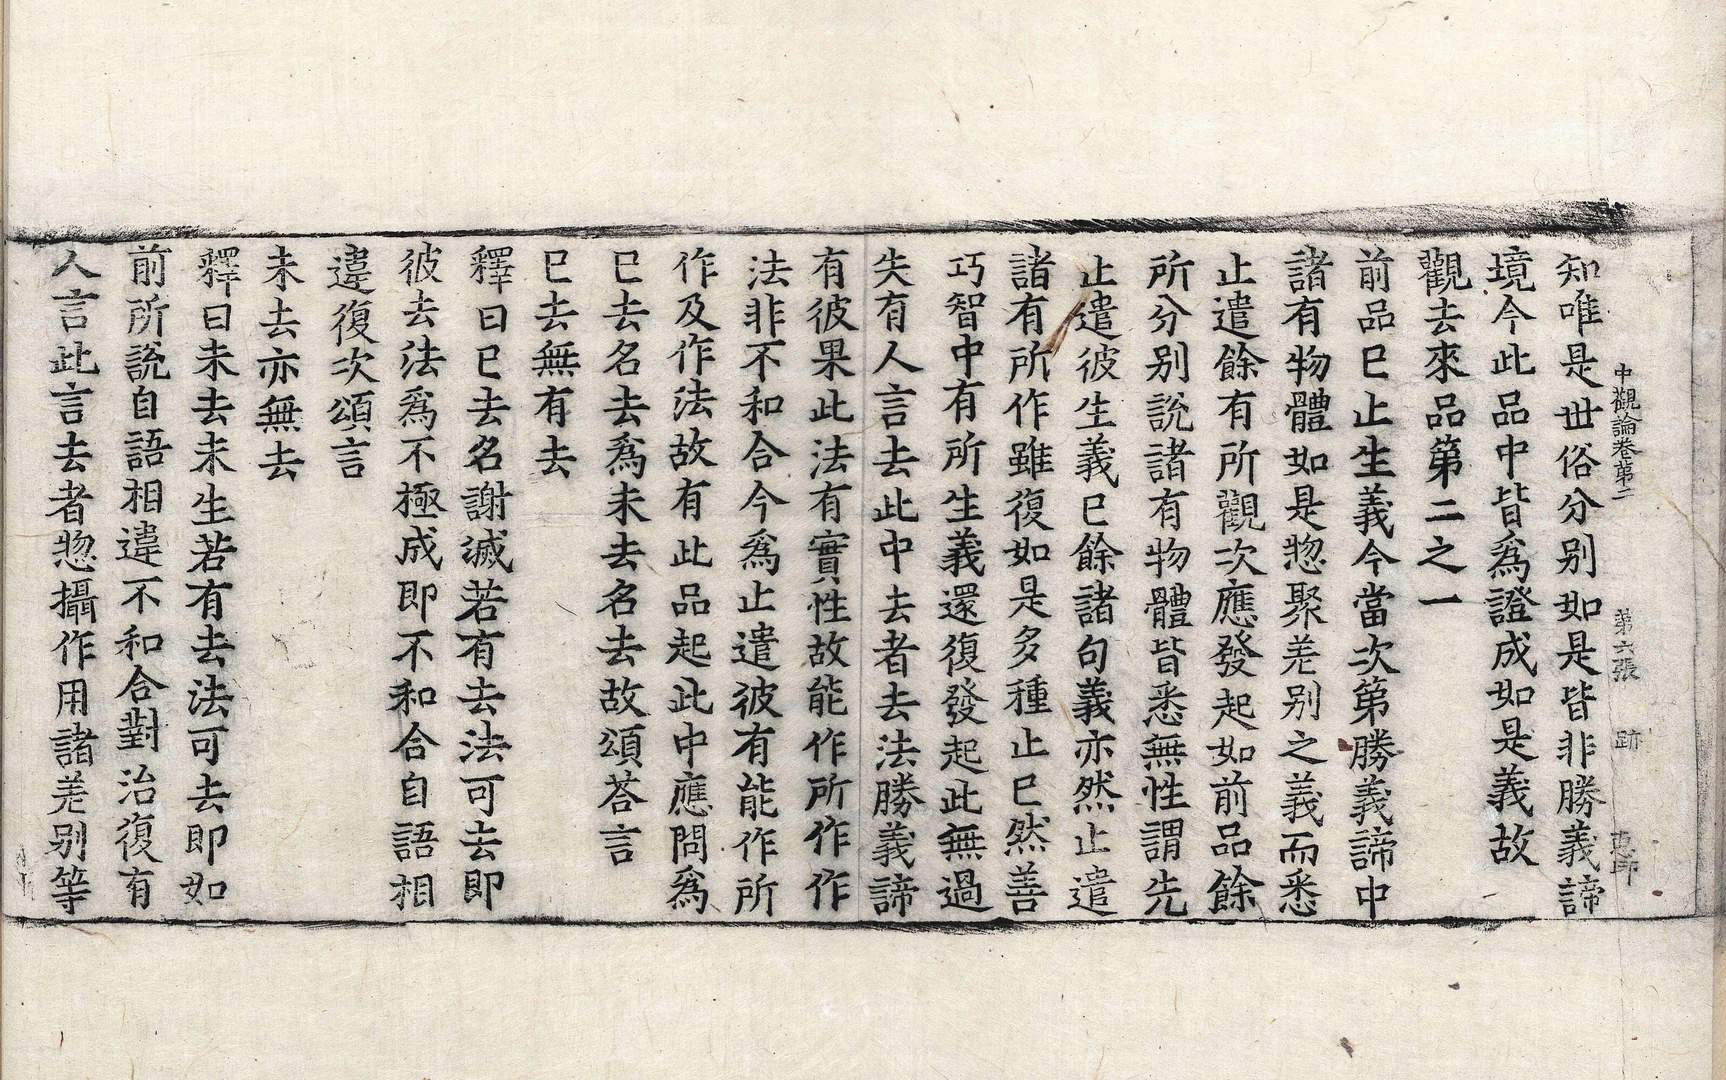 中觀論卷第二 第六張 跡
知唯是世俗分别如是皆非勝義諦
境今此品中皆爲證成如是義故
觀去來品第二之一
前品已止生義今當次第勝義諦中
諸有物體如是惣聚差别之義而悉
止遣餘有所觀次應發起如前品餘
所分别說諸有物體皆悉無性謂先
止遣彼生義已餘諸句義亦然止遣
諸有所作雖復如是多種止已然善
巧智中有所生義還復發起此無過
失有人言去此中去者去法勝義諦
有彼果此法有實性故能作所作作
法非不和合今爲止遣彼有能作所
作及作法故有此品起此中應問爲
已去名去爲未去名去故頌荅言
已去無有去
釋曰已去名謝滅若有去法可去即
彼去法爲不極成即不和合自語相
違復次頌言
未去亦無去
釋曰未去未生若有去法可去即如
前所說自語相違不和合對治復有
人言此言去者惣攝作用諸差别等